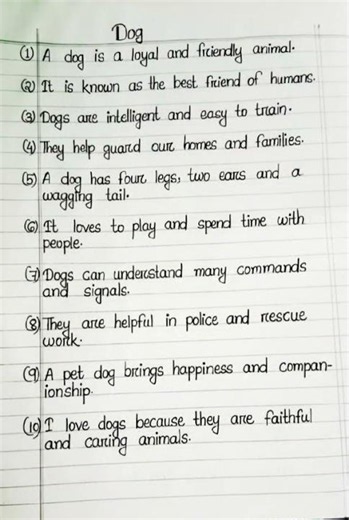 Dog
(1) A dog is a loyal and friendly animal.
(2) It is known as the best friend of humans.
(3) Dogs are intelligent and easy to train.
(4) They help guard our homes and families.
(5) A dog has four legs, two ears and a
wagging tail.
(6) It loves to play and spend time with
people.
(7) Dogs can understand many commands
and signals.
(8) They are helpful in police and rescue
work.
(9) A pet dog brings happiness and compan-
ionship.
(10) I love dogs because they are faithful
and caring animals.